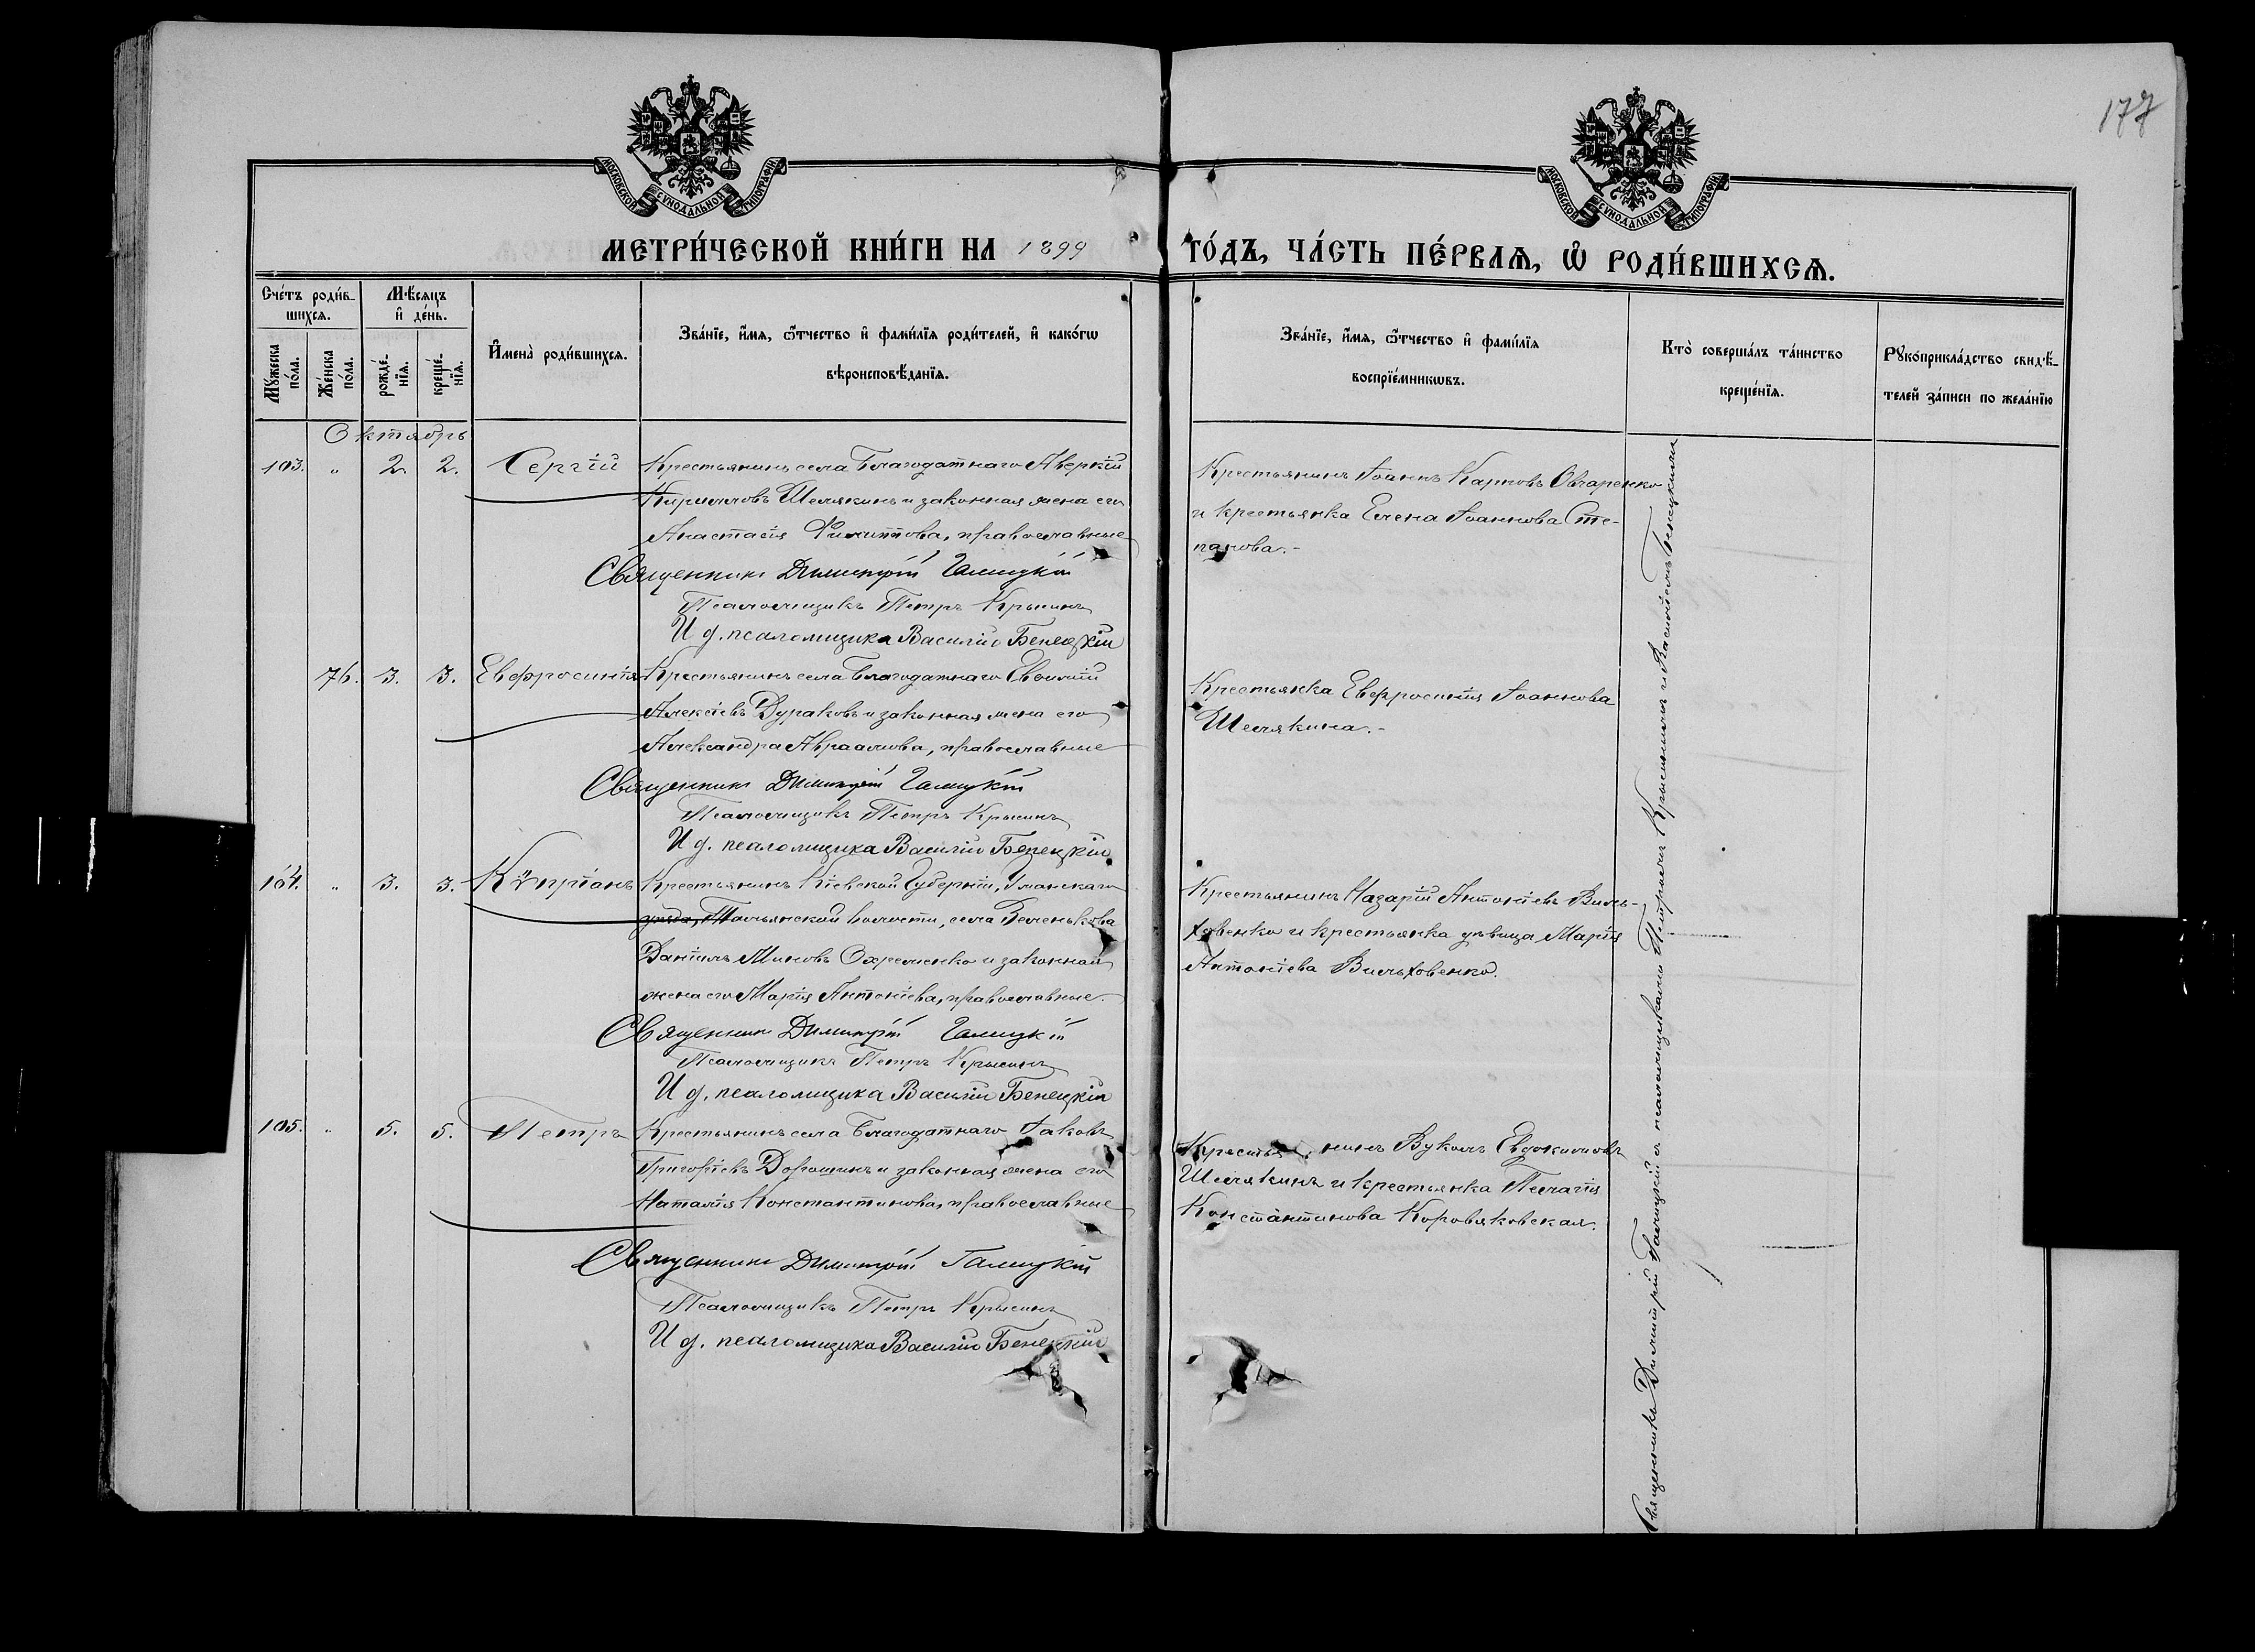 177
МОСКОВСКОЙ СѴНОДАЛЬНОЙ ТИПОГРАФІИ
МОСКОВСКОЙ СѴНОДАЛЬНОЙ ТИПОГРАФІИ
МЕТРИ́ЧЕСКОЙ КНИ́ГИ НА 1899 ГО́ДЪ, ЧА́СТЬ ПЕ́РВАѦ, Ѡ҆ РОДИ́ВШИХСѦ.
Сче́тъ роди́в-
шихсѧ.
Мꙋжеска по́ла.
Же́нска по́ла.
Мѣ́сяцъ
и҆ де́нь.
рожде́-
нїѧ.
креще́-
нїѧ.
И҆мена̀ роди́вшихсѧ.
Зва́нїе, и҆́мѧ, ѻ҆́тчество и҆ фами́лїѧ роди́телей, и҆ како́гѡ
вѣроисповѣ́данїѧ.
Зва́нїе, и҆́мѧ, ѻ҆́тчество и҆ фами́лїѧ
воспрїе́мникѡвъ.
Кто̀ соверша́лъ та́инство
креще́нїѧ.
Рꙋкоприкла́дство свидѣ́-
телей за́писи по жела́нїю
Октябрь
103. „ 2. 2. Сергій Крестьянинъ села Благодатнаго Аверкій
Кирилловъ Шелякинъ и законная жена его
Анастасія Филиппова, православные
Священникъ Димитрій Галицкій
Псаломщикъ Петръ Крысинъ
И д. псаломщика Василій Бенецкій
Крестьянинъ Іоаннъ Карповъ Овчаренко
и крестьянка Елена Іоаннова Сте-
панова.-
76. 3. 3. Евфросинія Крестьянинъ села Благодатнаго Евсилій
Алексіевъ Дураковъ и законная жена его
Александра Авраамова, православные
Священникъ Димитрій Галицкій
Псаломщикъ Петръ Крысинъ
И д. псаломщика Василій Бенецкій
Крестьянка Евфросинія Іоаннова
Шелякина.-
104. „ 3. 3. Кѵпріанъ Крестьянинъ Кіевской Губерніи, Уманскаго
уѣзда, Тальянской волости, села Беленькова
Даніилъ Миновъ Охременко и законная
жена его Марія Антоніева, православные.
Священникъ Димитрій Галицкій
Псаломщикъ Петръ Крысинъ
И д. псаломщика Василій Бенецкій
Крестьянинъ Назарій Антоніевъ Виль-
ховенко и крестьянка дѣвица Марія
Антоніева Вильховенко.
105. „ 5. 5. Петръ Крестьянинъ села Благодатнаго Іаковъ
Григоріевъ Дорошинъ и законная жена его
Наталія Константинова, православные
Священникъ Димитрій Галицкій
Псаломщикъ Петръ Крысинъ
И д. псаломщика Василій Бенецкій
Крестьянинъ Вуколъ Евдокимовъ
Шелякинъ и крестьянка Пелагія
Константинова Коровяковская.
Священникъ Димитрій Галицкій съ псаломщиками Петромъ Крысинымъ и Василіемъ Бенецкимъ